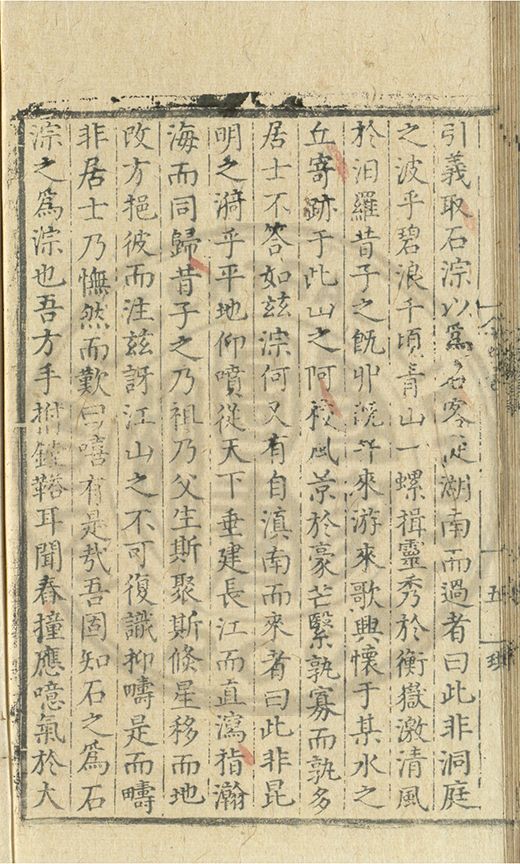 引義取石淙以爲名客從湖南而過者曰此非洞庭
之波乎碧浪千頃青山一螺揖靈秀於衡獄激清風
於汨羅昔子之旣丱旣弁來游來歌興懷于某水之
丘寄跡于此山之阿梭風景於豪芒繄孰寡而孰多
居士不答如玆淙何又有自滇南而來者曰此非昆
明之漪乎平地仰噴從天下垂建長江而直瀉指瀚
海而同歸昔子之乃祖乃父生斯聚斯倐星移而地
改方挹彼而注玆訝江山之不可復識抑疇是而疇
非居士乃憮然而歎曰嘻有是㢤吾固知石之爲石
淙之爲淙也吾方手拊鏜鞳耳聞舂撞應噫氣於大
五